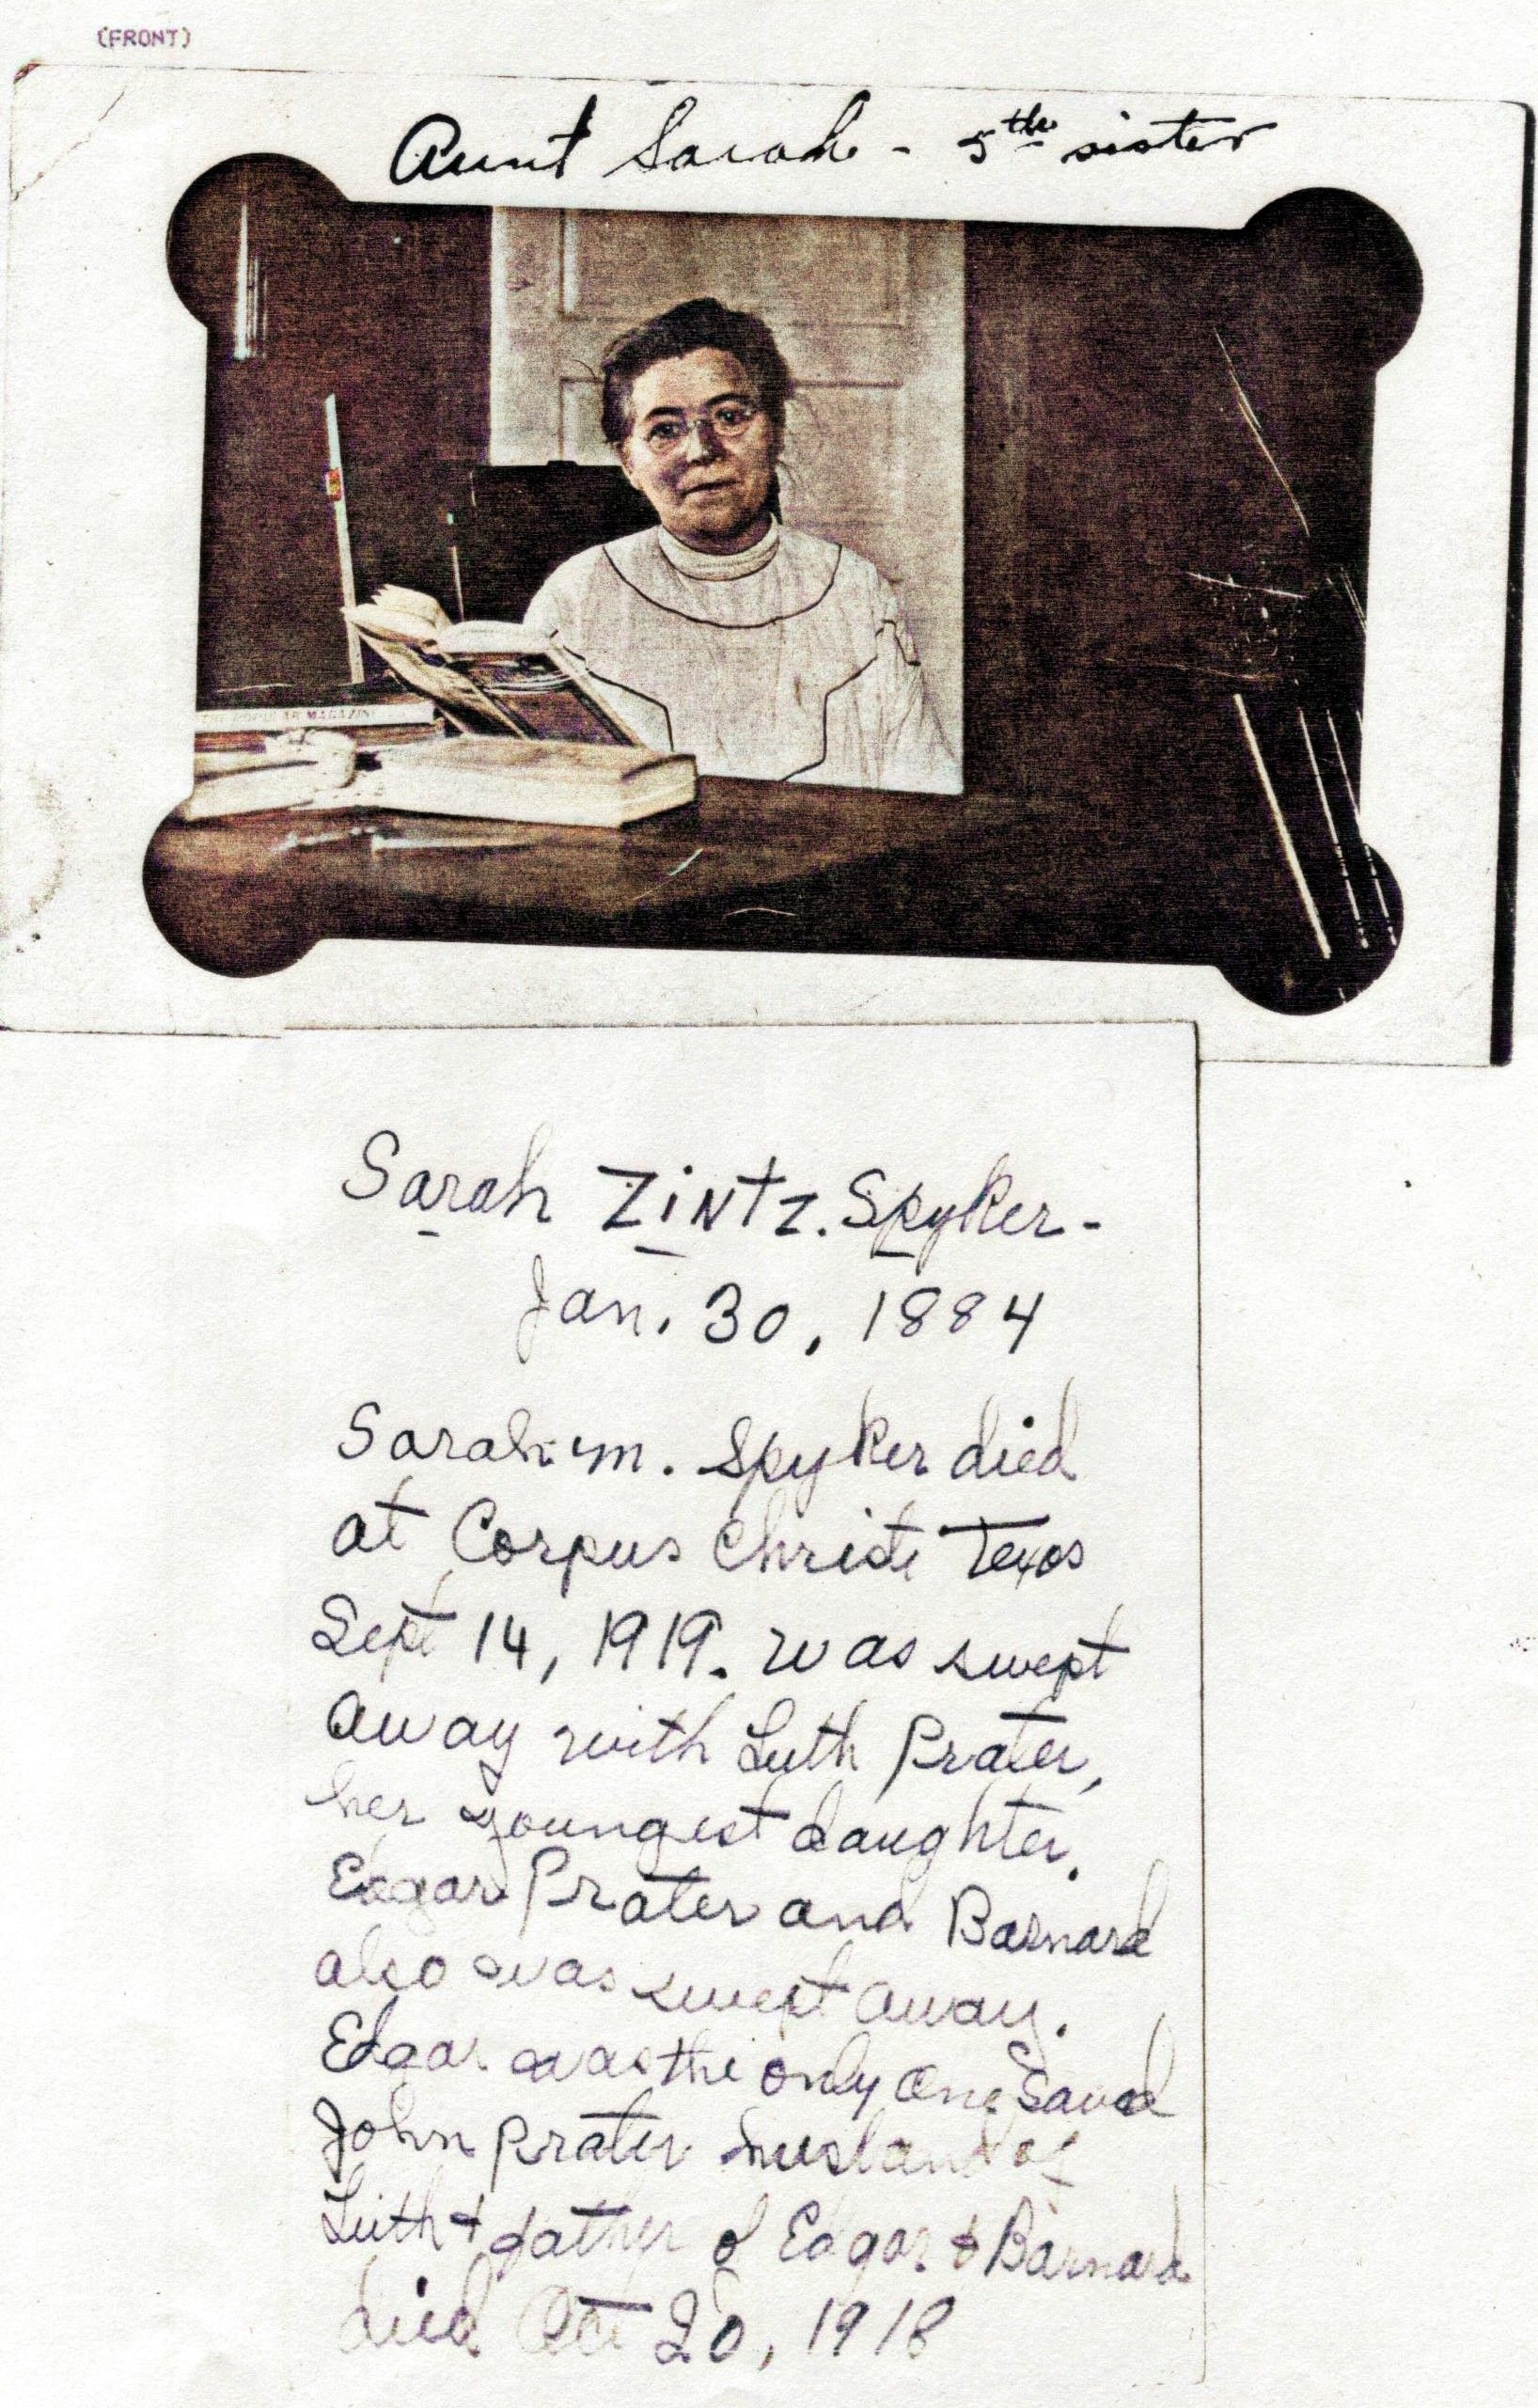 (FRONT)
Aunt Sarah - 5th sister
THE POPULAR MAGAZINE
Sarah Zintz. Spyker -
Jan. 30, 1884
Sarah m. Spyker died
at Corpus Christi Texas
Sept 14, 1919. was swept
away with Luth Prater,
her youngest daughter.
Edgar Prater and Barnard
also was swept away.
Edgar was the only one Saved
John Prater husband of
Luth + father of Edgar & Barnard
died Oct 20, 1918